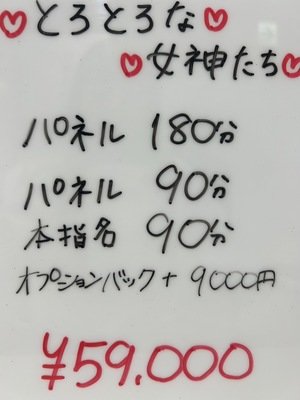 ♡とろとろな♡
♡女神たち♡
パネル 180分
パネル 90分
本指名 90分
オプションバック + 9000円
¥59.000